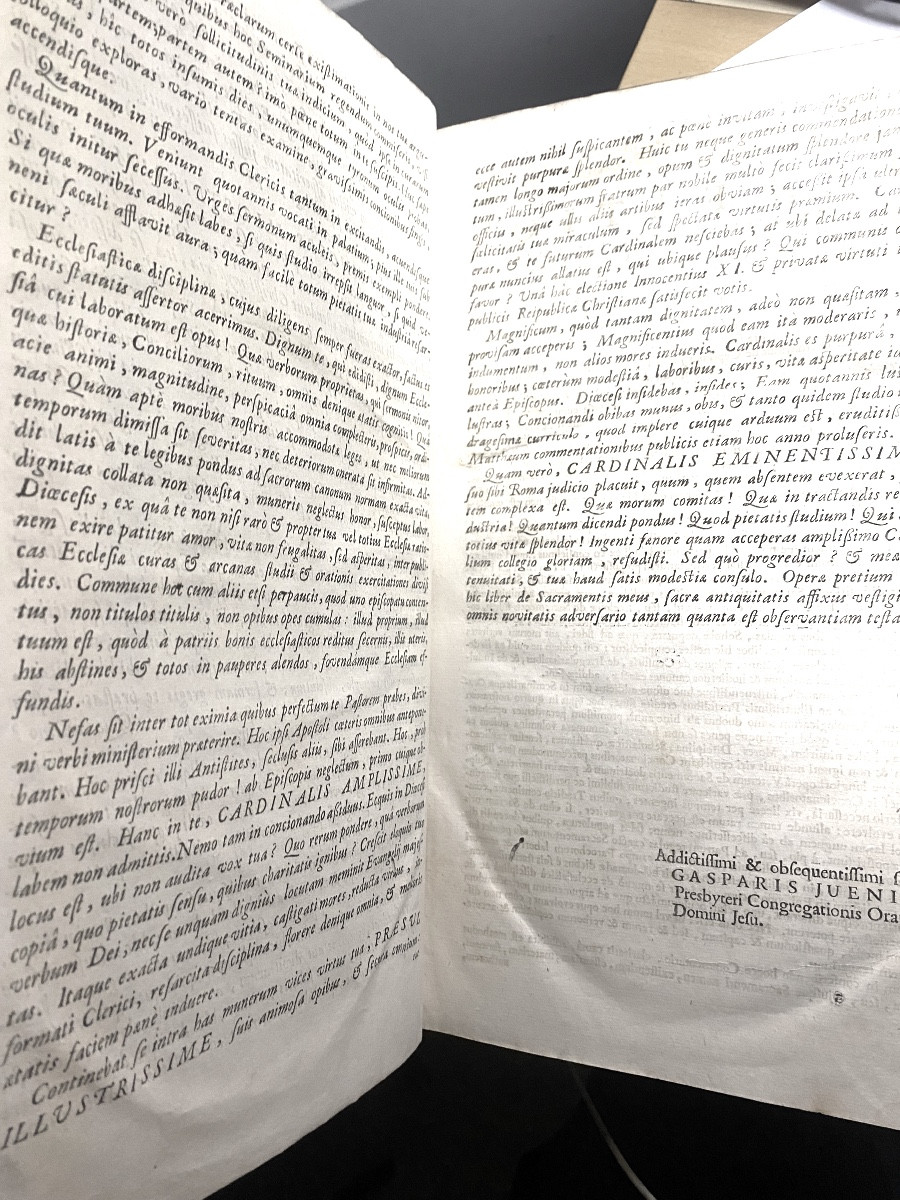 præclarum certè existimationis in nos tuæ
quibus hoc Seminarium regendum commiseris.
verò sollicitudinis tuæ indicium, quod ipse
partem, partem autem? imò pæne totum
hîc totos insumis dies, unumquemque tyronum
colloquio exploras, vario tentas examine, gravissimis concionibus
accendisque.
Quantum in efformandis Clericis tantum in excitandis,
studium tuum. Veniunt quotannis vocati in palatium; pius ille
oculis initur secessus. Urges sermonum aculeis, premis exempli pondere.
Si quæ moribus adhæsit labes, si quis studio irrepsit languor, si quid
neni sæculi afflavit aura; quam facilè totum pietati tuæ industria
citur?
Ecclesiasticæ disciplinæ, cujus diligens semper fueras exactor, factus es
editis statutis assertor acerrimus. Dignum te, qui edidisti, dignum Eccle-
siâ cui laboratum est opus! Quæ verborum proprietas, qui sermonis nitor,
quæ historiæ, Conciliorum, rituum, omnis denique ætatis cognitio! Quâ
acie animi, magnitudine, perspicaciâ omnia complecteris, prospicis, ordi-
nas? Quàm aptè moribus nostris accommodata leges, ut nec meliorum
temporum dimissa sit severitas, nec deteriorum onerata sit infirmitas. Ad-
dit latis à te legibus pondus ad sacrorum canonum normam exacta vita,
dignitas collata non quæsita, muneris neglectus honor, susceptus labor,
Diœcesis, ex quâ te non nisi rarò & propter us vel totius Ecclesiæ ratio-
nem exire patitur amor, vitæ non frugalitas, sed asperitas, inter publi-
cas Ecclesiæ curas & arcanas studii & orationis exercitationes divisi
dies. Commune hoc cum aliis etsi perpaucis, quod uno episcopatu conten-
tus, non titulos titulis, non opibus opes cumulas: illud proprium, illud
tuum est, quòd à patriis bonis ecclesiasticos reditus secernis, illis uteris,
his abstines, & totos in pauperes alendos, fovendamque Ecclesiam ef-
fundis.
Nefas sit inter tot eximia quibus perfectum te Pastorem præbes, divi-
ni verbi ministerium præterire. Hoc ipsi Apostoli cæteris omnibus antepone-
bant. Hoc prisci illi Antistites, seclusis aliis, sibi asserebant. Hoc, proh
temporum nostrorum pudor! ab Episcopis neglectum, primo cuique ob-
vium est. Hanc in te, CARDINALIS AMPLISSIME,
labem non admittis. Nemo tam in concionando assiduus. Ecquis in Diœcesi
locus est, ubi non audita vox tua? Quo rerum pondere, quâ verborum
copiâ, quo pietatis sensu, quibus charitatis ignibus? Crescit eloquiis tuis
verbum Dei, nec se unquam digniùs locutam meminit Evangelii majes-
tas. Itaque exacta undique vitia, castigati mores, reducta virtus,
formati Clerici, resarcita disciplina, florere denique omnia, & melioris
ætatis faciem pænè induere.
Continebat se intra has munerum vices virtus tua; PRÆSUL
ILLUSTRISSIME, suis animosa opibus, & secura omnium:
ecce autem nihil suspicantem, ac pænè invitam, investigavit
vestivit purpuræ splendor. Huic tu neque generis commendationem
tamen longo majorum ordine, opum & dignitatum splendore
tum, illustrissimorum fratrum par nobile multo fecit clarissimum
officia, neque ullis aliis artibus ieras obviam; accessit ipsa
salicitatis tuæ miraculum, sed spectatæ virtutis præmium.
erat, & te futurum Cardinalem nesciebas; at ubi delatæ ad
puræ nuncius allatus est, qui ubique plausus? Qui communis
favor? Unâ hâc electione Innocentius XI. & privatæ virtuti
publicis Reipublicæ Christianæ satisfecit votis.
Magnificum, quod tantam dignitatem, adeò non quæsitam,
provisam acceperis; Magnificentius quod eam ita moderaris,
indumentum, non alios mores indueris. Cardinalis es purpurâ,
honoribus; cæterùm modestiâ, laboribus, curis, vitæ asperitate
anteà Episcopus. Diœcesi insidebas, insides; Eam quotannis
lustras; Concionandi obibas munus, obis, & tanto quidem studio
dragesimæ curriculo, quod implere cuique arduum est,
Matthæum commentationibus publicis etiam hoc anno proluseris.
Quàm verò, CARDINALIS EMINENTISSIM
suo sibi Roma judicio placuit, quum, quem absentem evexerat,
tem complexa est. Quæ morum comitas! Quæ in tractandis re
dustria! Quantum dicendi pondus! Quod pietatis studium! Qui
totius vitæ splendor! Ingenti fanore quam acceperas amplissimo
lium collegio gloriam, refudisti. Sed quò progredior? & meæ
tenuitati, & tuæ haud satis modestiæ consulo. Operæ pretium
hic liber de Sacramentis meus, sacræ antiquitatis affixus vestigi
omnis novitatis adversario tantam quanta est observantiam testa
Addictissimi & obsequentissimi
GASPARIS JUENI
Presbyteri Congregationis Ora
Domini Jesu.